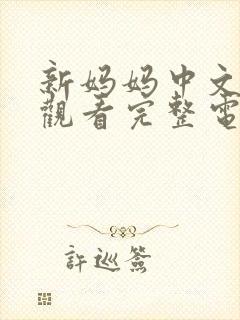 新妈妈中文
觀看完整電
許巡簽